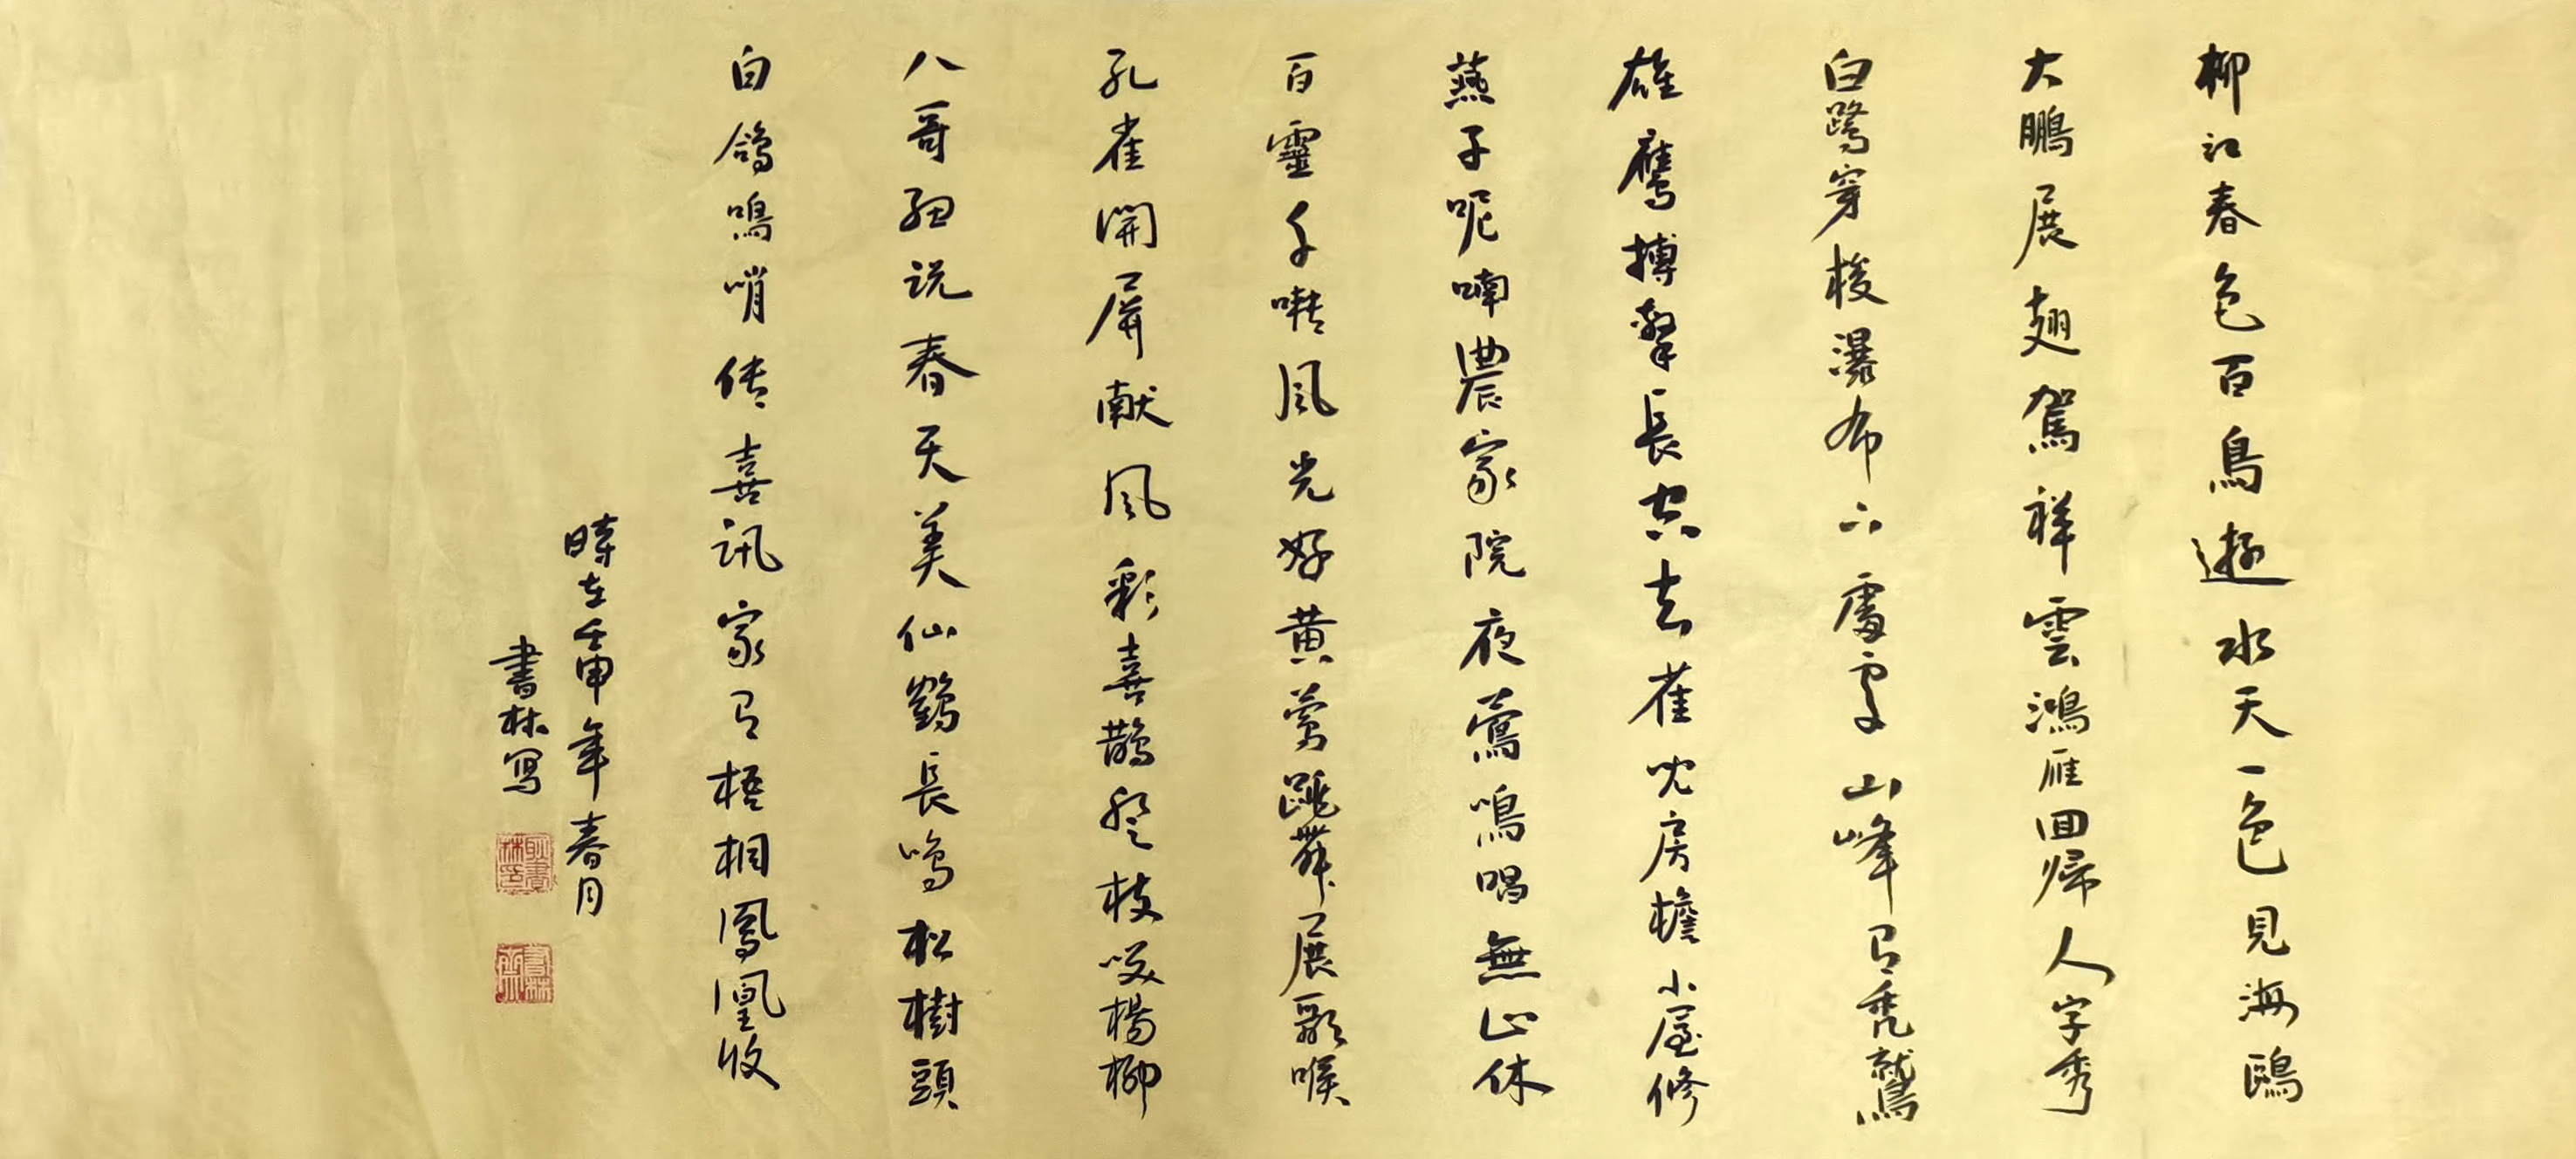 柳江春色百鳥遊水天一色見海鷗
大鵬展翅駕祥雲鴻雁回歸人字秀
白鹭穿梭瀑布下處處山峰有秃鷲
雄鹰搏擊長空去雀吠房檐小屋修
燕子呢喃農家院夜鶯鳴唱無止休
百靈千啭風光好黄莺跳舞展歌喉
孔雀開屏献風彩喜鹊登枝咬楊柳
八哥細说春天美仙鶴長鸣松樹頭
白鸽鳴哨传喜讯家有梧桐鳳凰收
時在壬申年春月
書林写